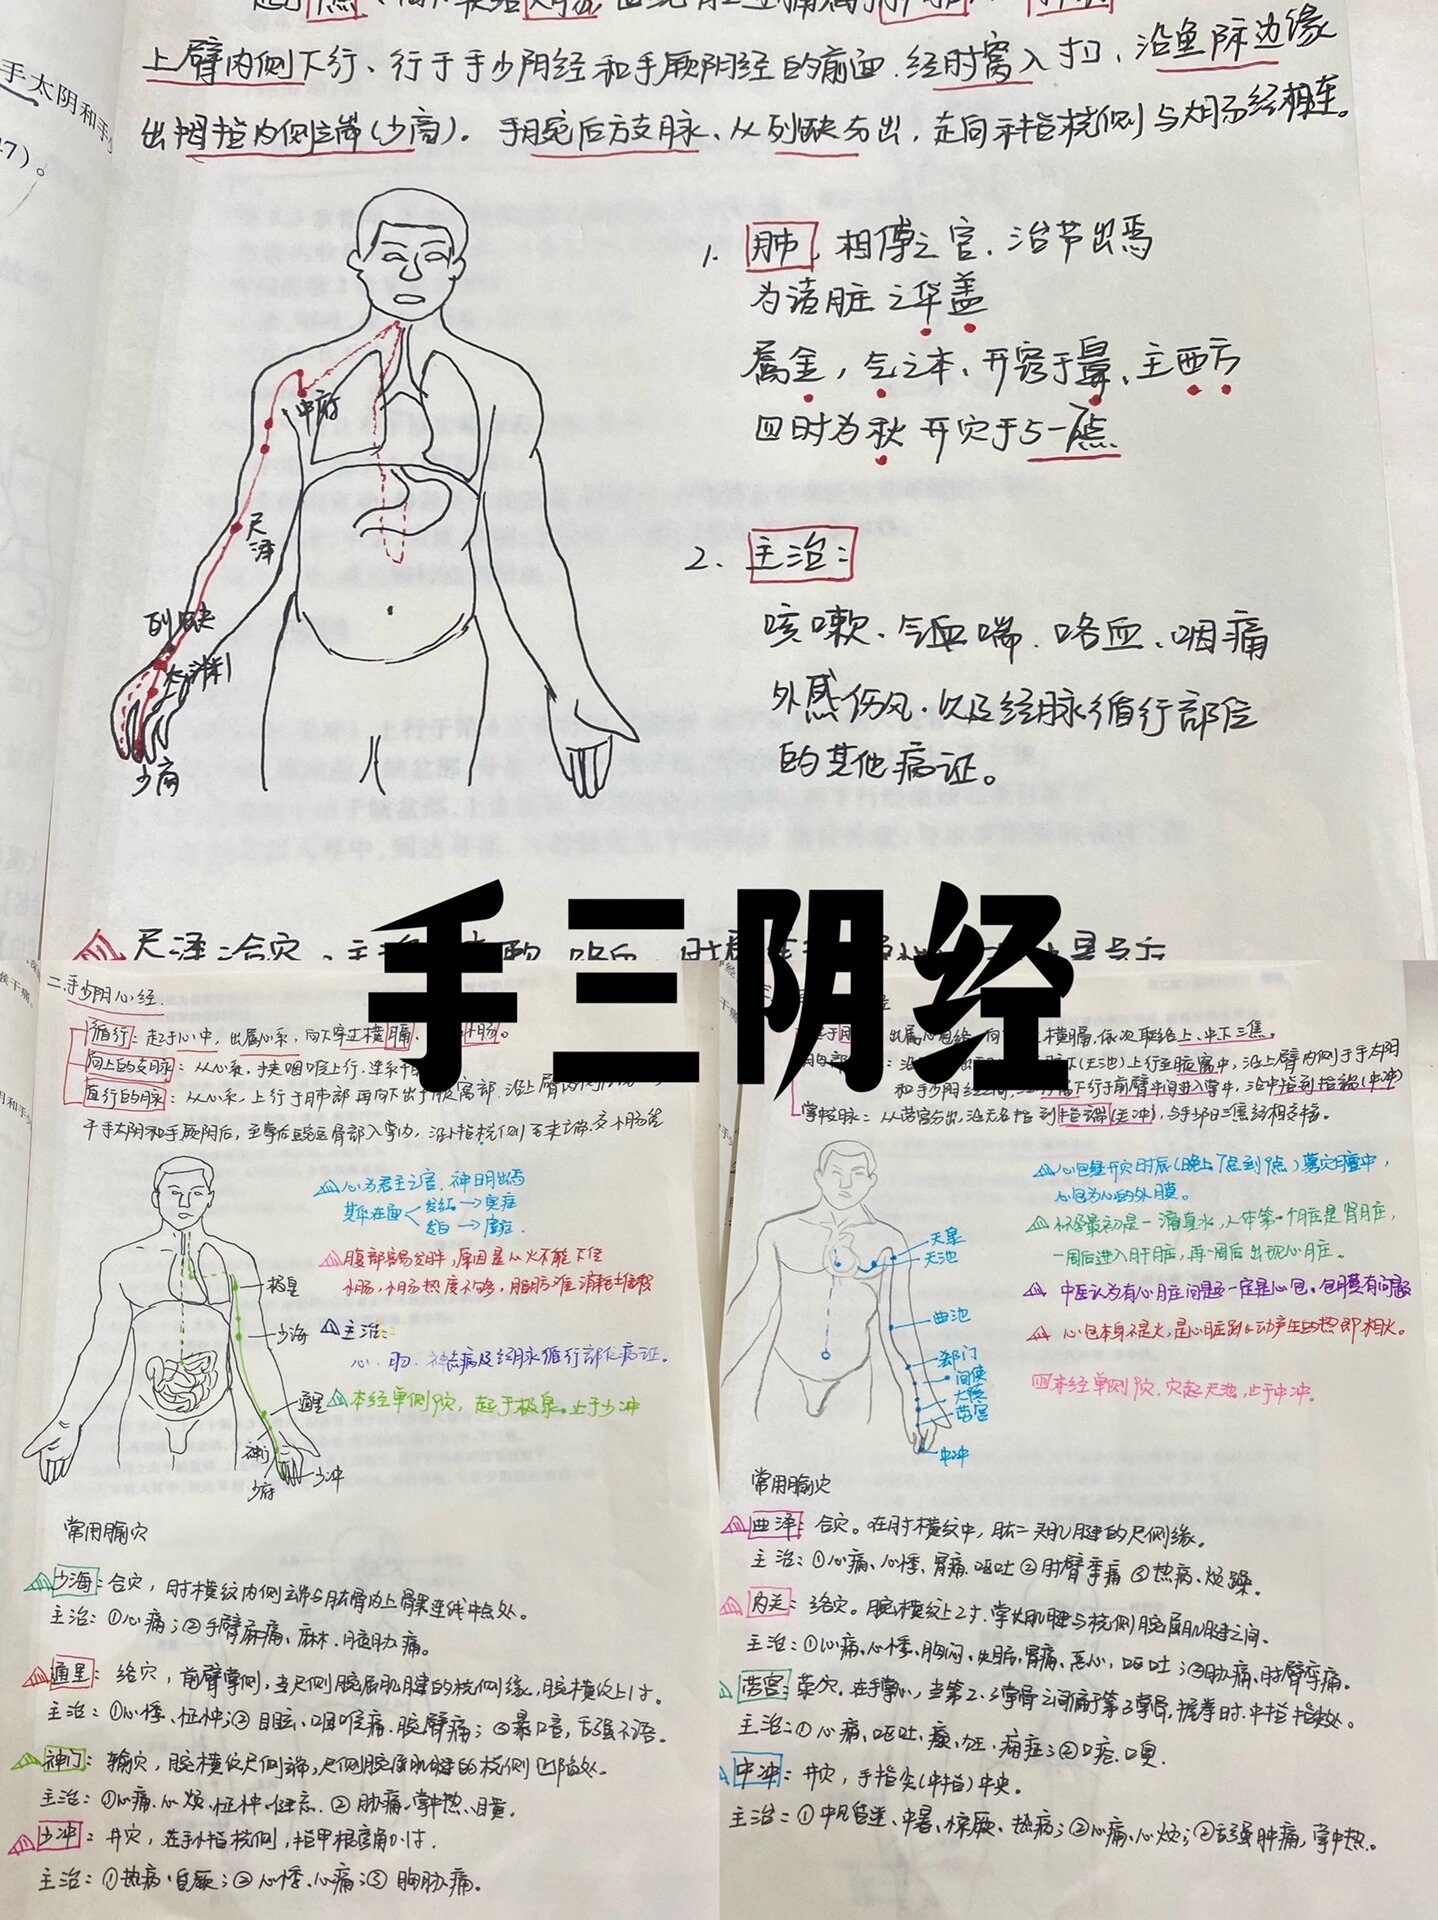 手太阴和手
27)。
上臂内侧下行、行于手少阴经和手厥阴经的前面.经肘窝入寸口,沿鱼际边缘
出拇指内侧端(少商)。手腕后方支脉、从列缺分出,走向示指桡侧与大肠经相连。
中府
尺泽
列缺
太渊
少商
1. 肺,相傅之官、治节出焉
为诸脏之华盖
属金,气之本、开窍于鼻、主西方
四时为秋 开穴于5一点
2、主治:
咳嗽、气血喘、咯血、咽痛
外感伤风、以及经脉循行部位
的其他病证。
手三阴经
尺泽:合穴、
二.手少阴心经.
循行:起于心中,出属心系,向下穿过横膈,小肠。
向上的支脉:从心系,夹咽喉上行,连系
直行的脉:从心系,上行于肺部再向下出于腋窝部.沿上臂
于手太阴和手厥阴后,至掌后豌豆骨部入掌内,沿小指桡侧至末端.交小肠经
心为君主之官.神明出焉
其华在面 发红→实症
发白→虚症.
腹部容易发胖,原因是心火不能下住
小肠,小肠热度不够,脂肪难
主治:
心、胸、神志病及经脉循行部位病证。
本经单侧9穴,起于极泉。止于少冲
极泉
少海
通里
神门
少府
少冲
常用腧穴
少海:合穴,肘横纹内侧端与肱骨内上髁连线中点处。
主治:①心痛;②手臂麻痛、麻木.腋肋痛。
通里:络穴,前臂掌侧,当尺侧腕屈肌腱的桡侧缘,腕横纹上1寸。
主治:①心悸、怔忡;② 目眩、咽喉痛.腕臂痛;③暴喑,舌强不语。
神门:输穴,腕横纹尺侧端,尺侧腕屈肌腱的桡侧凹陷处.
主治:①心痛、心烦、怔忡、健忘.② 胁痛、掌中热、目黄.
少冲:井穴,在手小指桡侧,指甲根旁角0.1寸.
主治:①热病、昏厥;②心悸、心痛;③ 胸胁痛。
出属心包络,向下横膈,依次联络上、中、下三焦。
(天池)上行至腋窝中,沿上臂内侧于手太阴
和手少阴经之间,下行于前臂中间进入掌中,沿中指到指端(中冲)
掌中支脉:从劳宫分出,沿无名指到指端(关冲),与手少阳三焦经相交接。
心包经开穴时辰(晚上7点到9点)募穴膻中,
心包为心的外膜。
怀孕最初是一滴真水,人体第一个脏是肾脏,
一周后进入肝脏,再一周后出现心脏。
中医认为有心脏问题一定是心包。包膜有问题
心包本身不是火,是心脏跳动产生的热即相火。
本经单侧9穴.穴起天池,止于中冲。
天泉
天池
曲池
郄门
间使
大陵
劳宫
中冲
常用腧穴
曲泽:合穴。在肘横纹中,肱二头肌腱的尺侧缘。
主治:①心痛、心悸、胃痛、呕吐②肘臂挛痛③热病、烦躁。
内关:络穴。腕横纹上2寸.掌长肌腱与桡侧腕屈肌腱之间.
主治:①心痛、心悸、胸闷、失眠、胃痛、恶心,呕吐;②肋痛、肘臂挛痛。
劳宫:荥穴.在手掌心,当第2、3掌骨之间偏于第3掌骨,握拳时.中指指尖处。
主治:①心痛、呕吐、癫、狂、痫症;②口疮、口臭.
中冲:井穴,手指尖(中指)中央。
主治:①中风昏迷、中暑、惊厥、热病;②心痛、心烦;③舌强肿痛,掌中热。